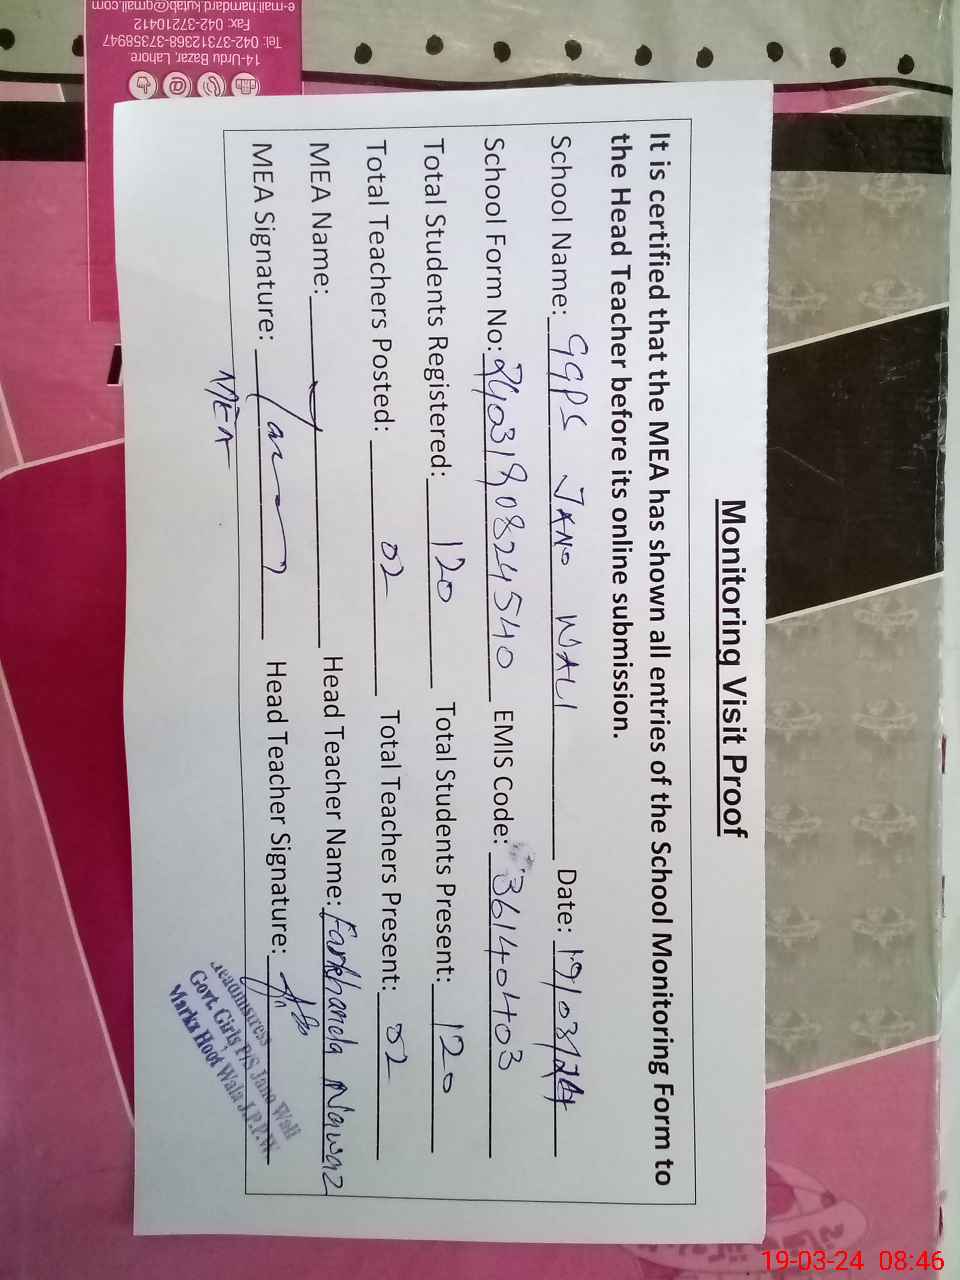 Monitoring Visit Proof
It is certified that the MEA has shown all entries of the School Monitoring Form to
the Head Teacher before its online submission.
School Name: GGPS JANO WALI Date: 19/03/24
School Form No: 2403190824540 EMIS Code: 36140403
Total Students Registered: 120 Total Students Present: 120
Total Teachers Posted: 02 Total Teachers Present: 02
MEA Name: Head Teacher Name: Farkhanda Nawaz
MEA Signature: Head Teacher Signature:
MEA
Headmistress
Govt. Girls P/S Jano Wali
Marka Hoot Wala J.P.P.W
14-Urdu Bazar, Lahore.
Tel: 042-37312368-37358947
Fax: 042-37210412
e-mail:hamdard.kutab@gmail.com
19-03-24 08:46